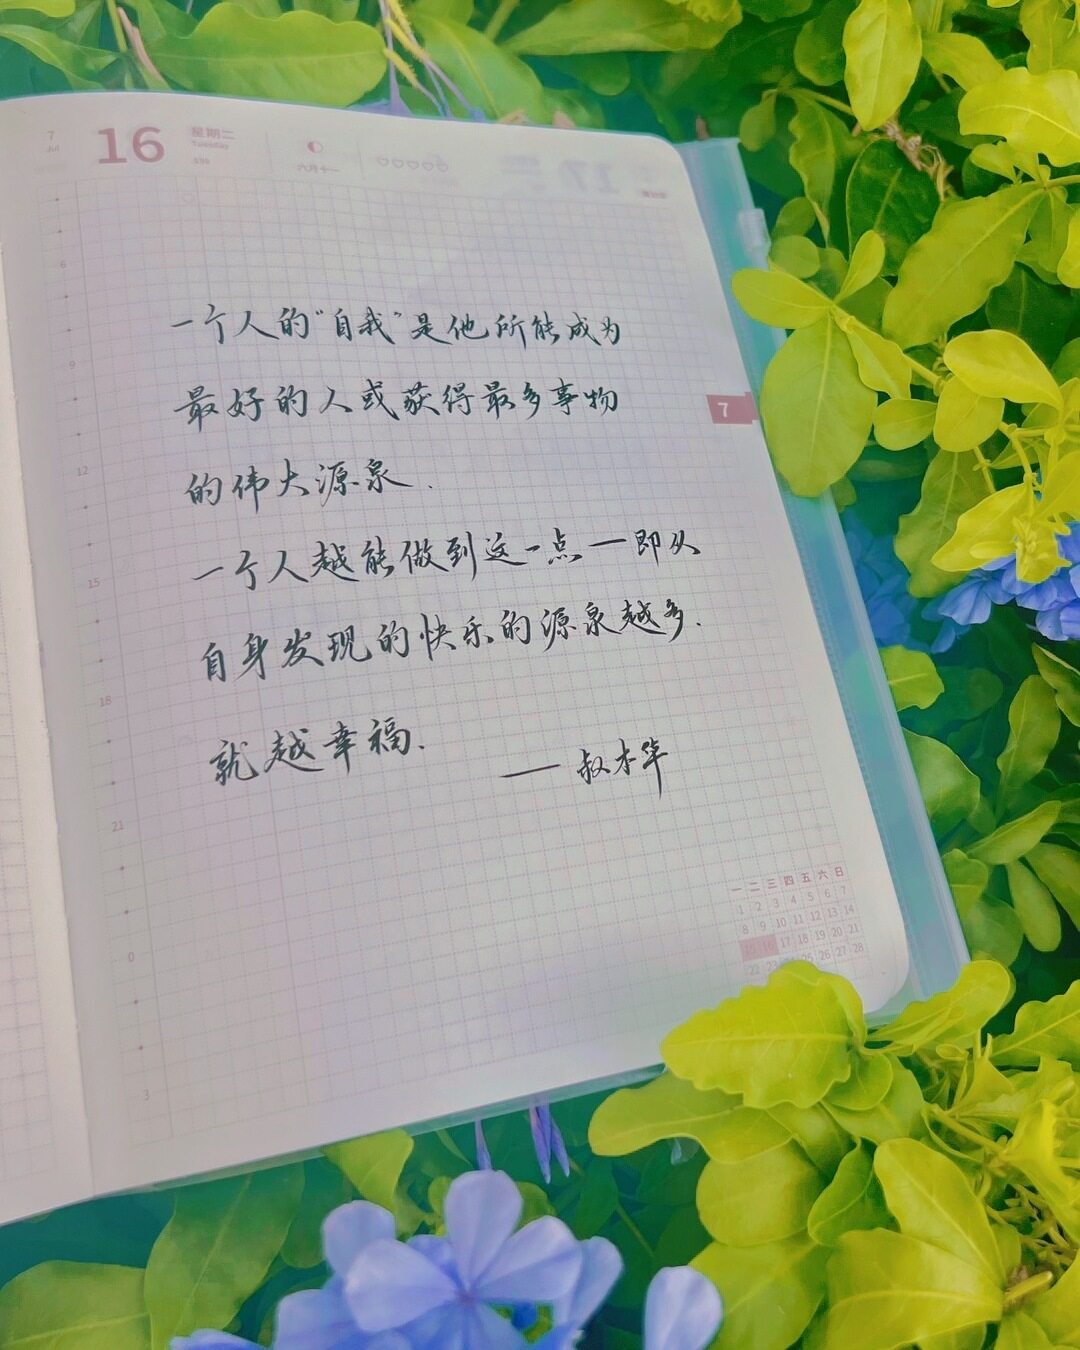 7
Jul
16
星期二
Tuesday
198
六月十一
17
6
9
12
15
18
21
0
3
7
一个人的“自我”是他所能成为
最好的人或获得最多事物
的伟大源泉.
一个人越能做到这一点一即从
自身发现的快乐的源泉越多.
就越幸福.
——叔本华
一 二 三 四 五 六 日
1 2 3 4 5 6 7
8 9 10 11 12 13 14
15 16 17 18 19 20 21
22 23 24 25 26 27 28